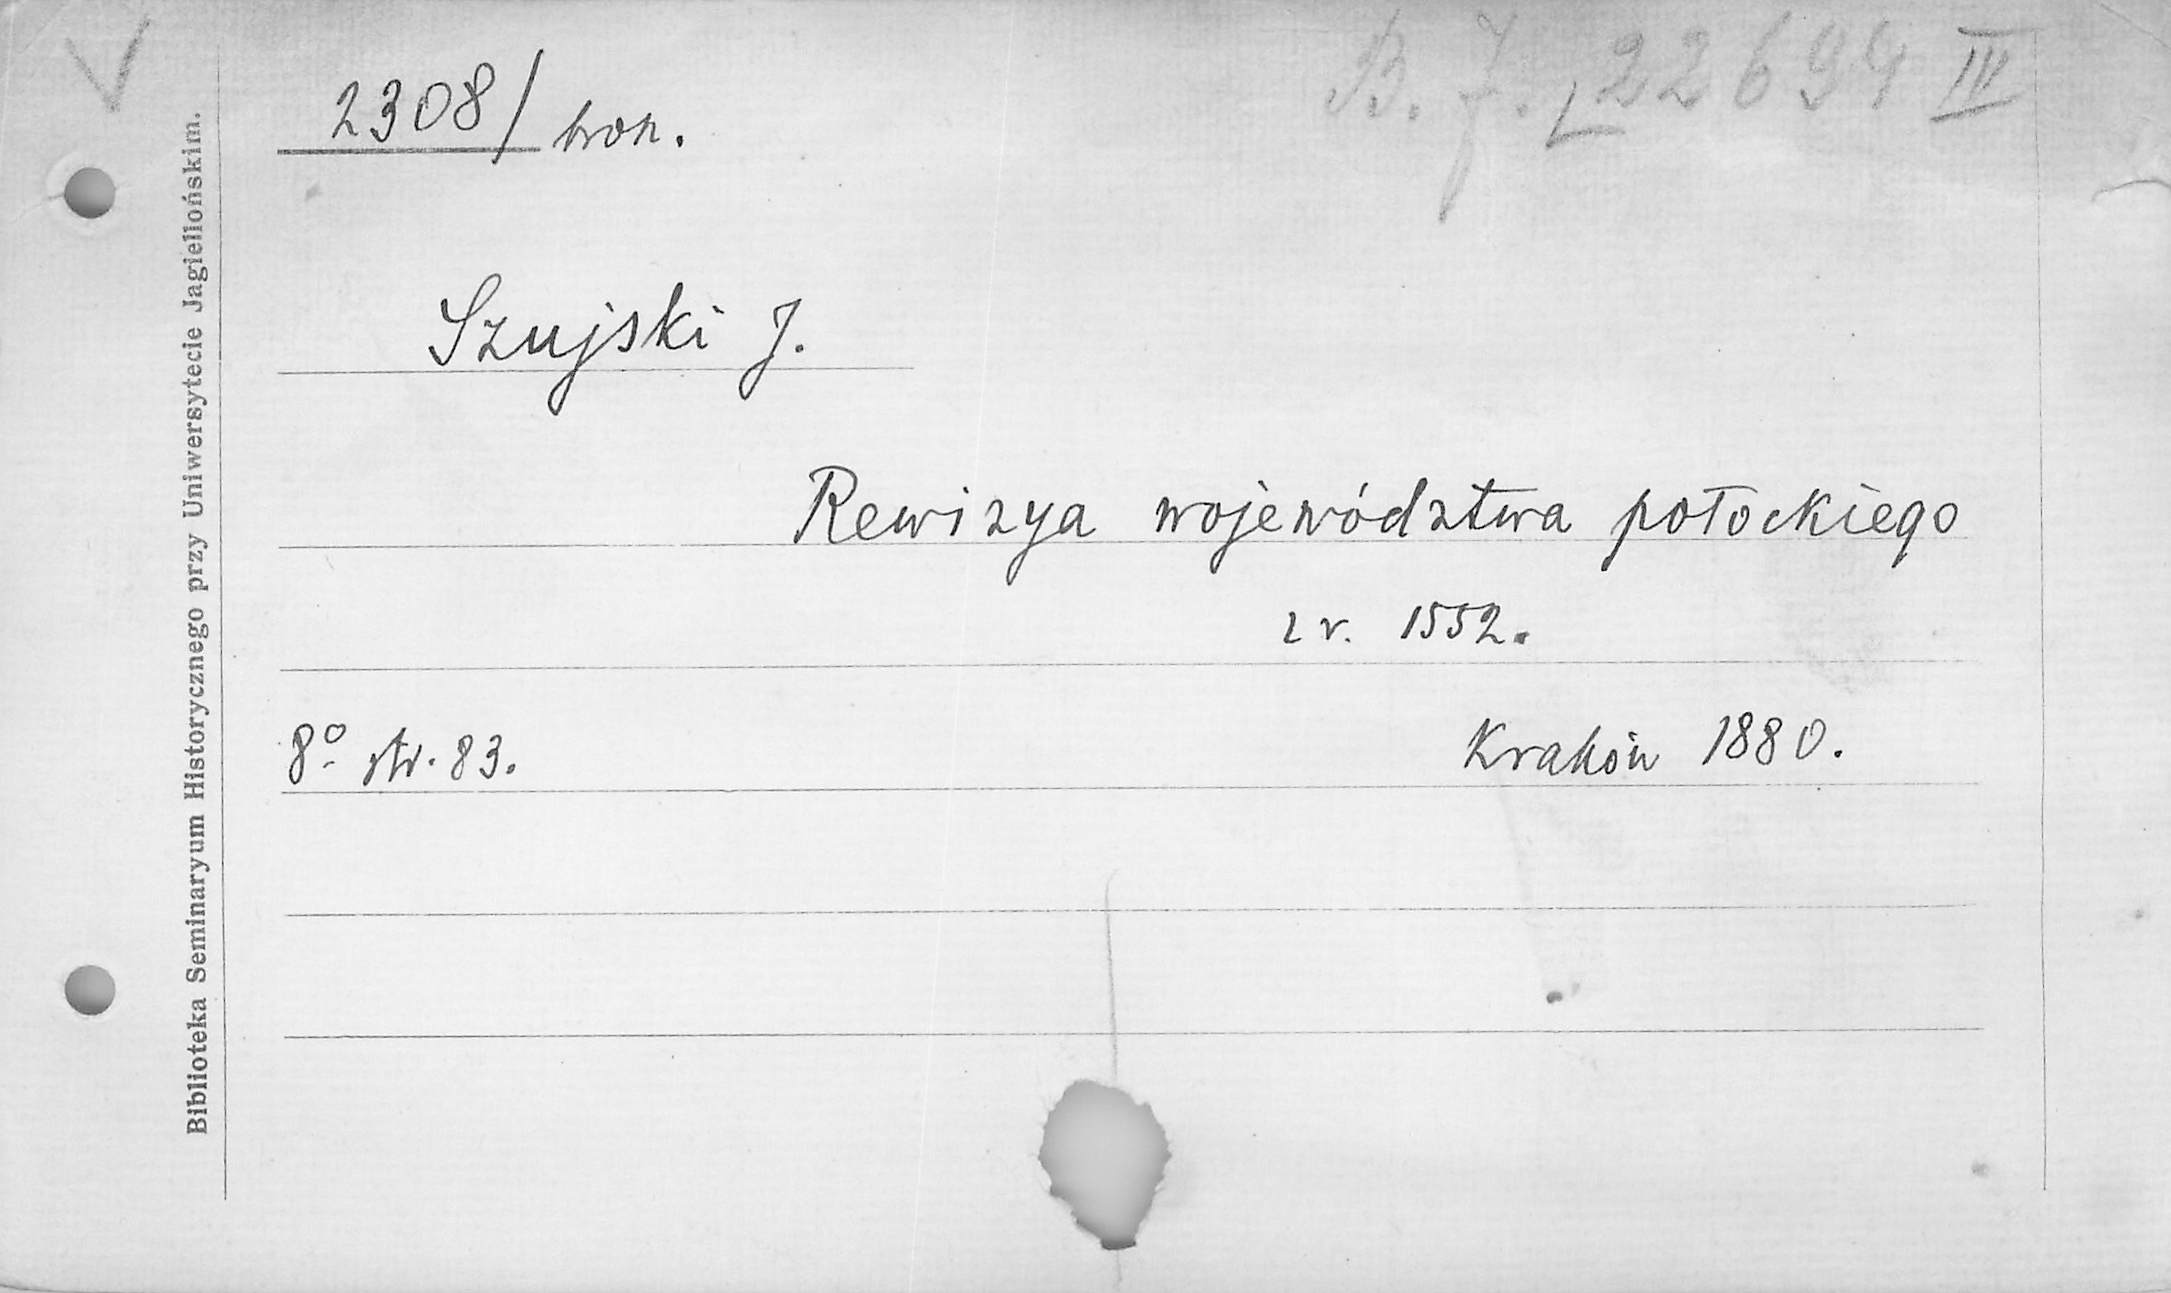 B. J. 22694 IV
2308/ bron.
Szujski J.
Rewizya województwa połockiego
z r. 1552.
8° str. 83.
Kraków 1880.
Biblioteka Seminaryum Historycznego przy Uniwersytecie Jagiellońskim.